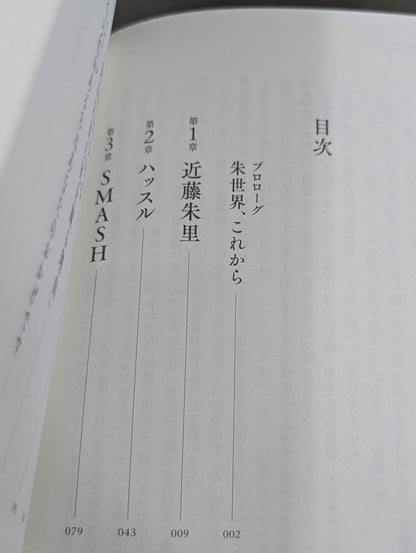 目次
プロローグ
朱世界、これから 002
第1章 近藤朱里 009
第2章 ハッスル 043
第3章 SMASH 079